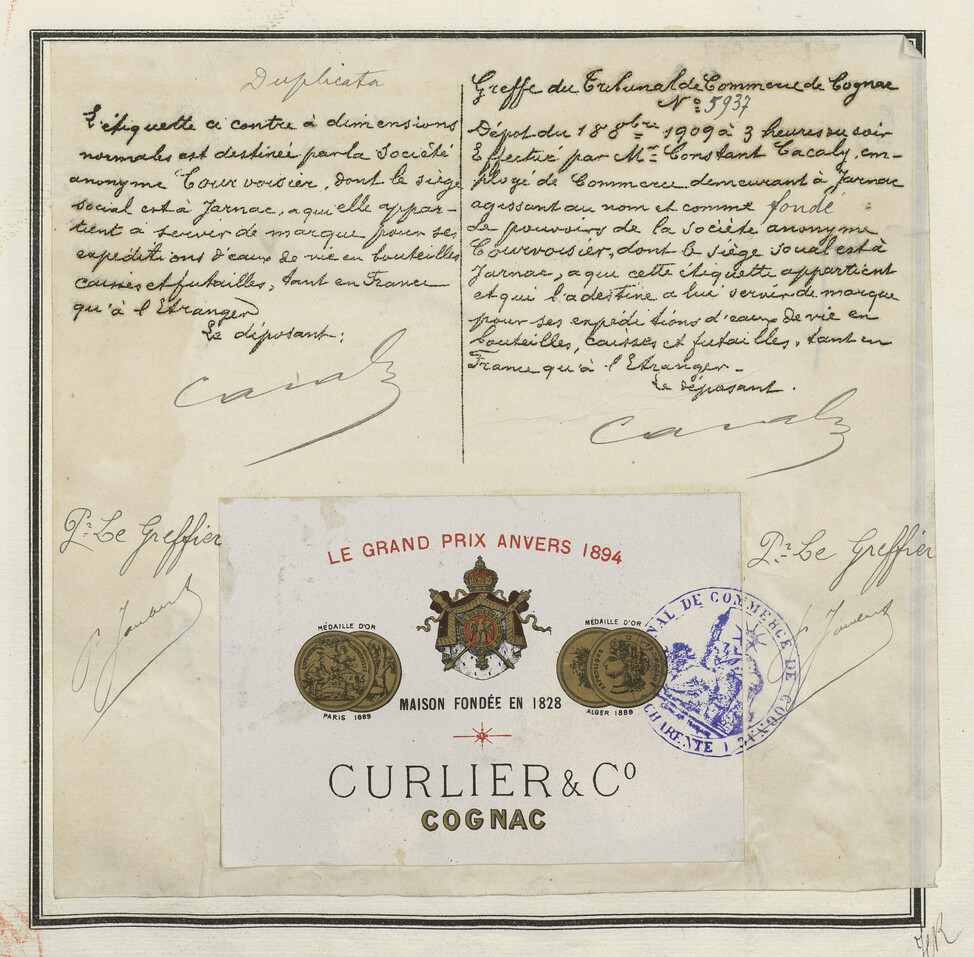 Duplicata
L'étiquette ci contre à dimensions
normales est destinée par la Société
anonyme Courvoisier, dont le siège
social est à Jarnac, a qui elle appar-
tient à servir de marque pour ses
expéditions d'eaux de vie en bouteilles
caisses et futailles, tant en France
qu'à l'Etranger
Le déposant:
Cacaly
Greffe du Tribunal de Commerce de Cognac
N° 5937
Dépot du 18 8bre 1909 à 3 heures du soir
Effectué par Mr Constant Cacaly, em-
ployé de Commerce demeurant à Jarnac
agissant au nom et comme fondé
de pouvoirs de la Société anonyme
Courvoisier, dont le siège social est à
Jarnac, a qui cette étiquette appartient
et qui l'a destine a lui servir de marque
pour ses expéditions d'eaux de vie en
bouteilles, caisses et futailles, tant en
France qu'à l'Etranger-
Le déposant.
Cacaly
Pr Le Greffier
Pr Le Greffier
LE GRAND PRIX ANVERS 1894
MÉDAILLE D'OR
PARIS 1889
MÉDAILLE D'OR
ALGER 1889
MAISON FONDÉE EN 1828
CURLIER & Co
COGNAC
TRIBUNAL DE COMMERCE DE COGNAC
(CHARENTE)
HR